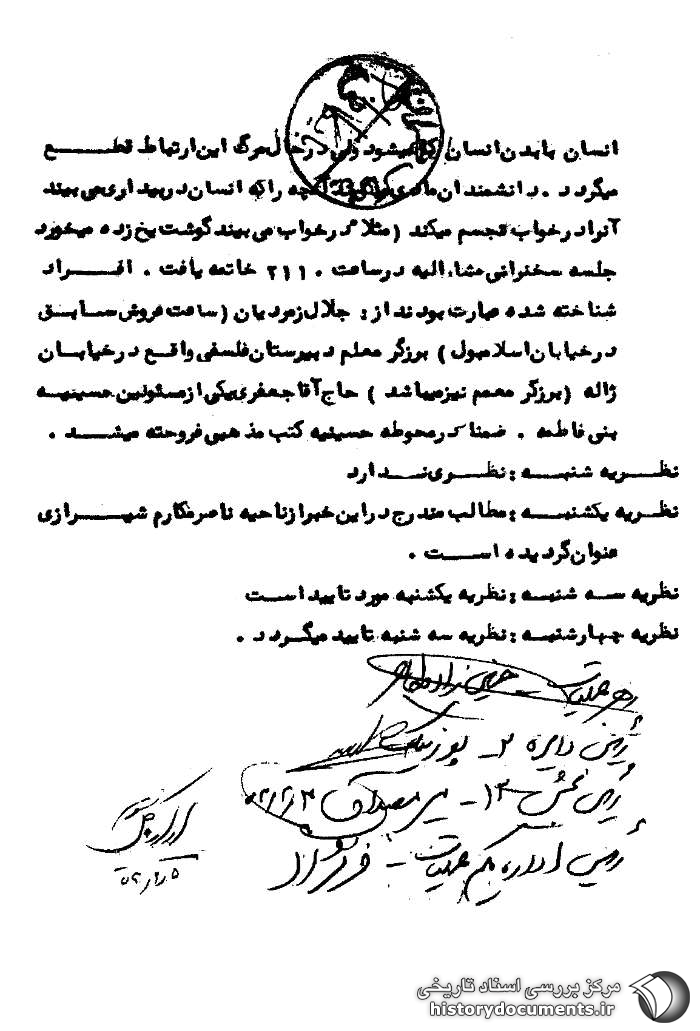 انسان بابدن انسان کم میشود ولی در حال مرگ این ارتباط قطع
میگردد . دانشمندان مادی میگویند آنچه را که انسان در بیداری می بیند
آنرا در خواب تجسم میکند (مثلا در خواب می بیند گوشت یخ زده میخورد
جلسه سخنرانی مشارالیه در ساعت ۲۱۱۰ خاتمه یافت . افراد
شناخته شده عبارت بودند از : جلال زمردیان (ساعت فروش سابق
در خیابان اسلامبول) برزگر معلم دبیرستان فلسفی واقع در خیابان
ژاله (برزگر معمم نیز میباشد ) حاج آقا جعفری یکی از مسئولین حسینیه
بنی فاطمه . ضمنا در محوطه حسینیه کتب مذهبی فروخته میشد .
نظریه شنبه : نظری ندارد
نظریه یکشنبه : مطالب مندرج در این خبر از ناحیه ناصر مکارم شیرازی
عنوان گردیده است .
نظریه سه شنبه : نظریه یکشنبه مورد تایید است
نظریه چهارشنبه : نظریه سه شنبه تایید میگردد .
رهبر عملیات -
رئیس دایره ۲ -
رئیس بخش ۱۳ -
رئیس اداره یکم عملیات -
مرکز بررسی اسناد تاریخی
historydocuments.ir